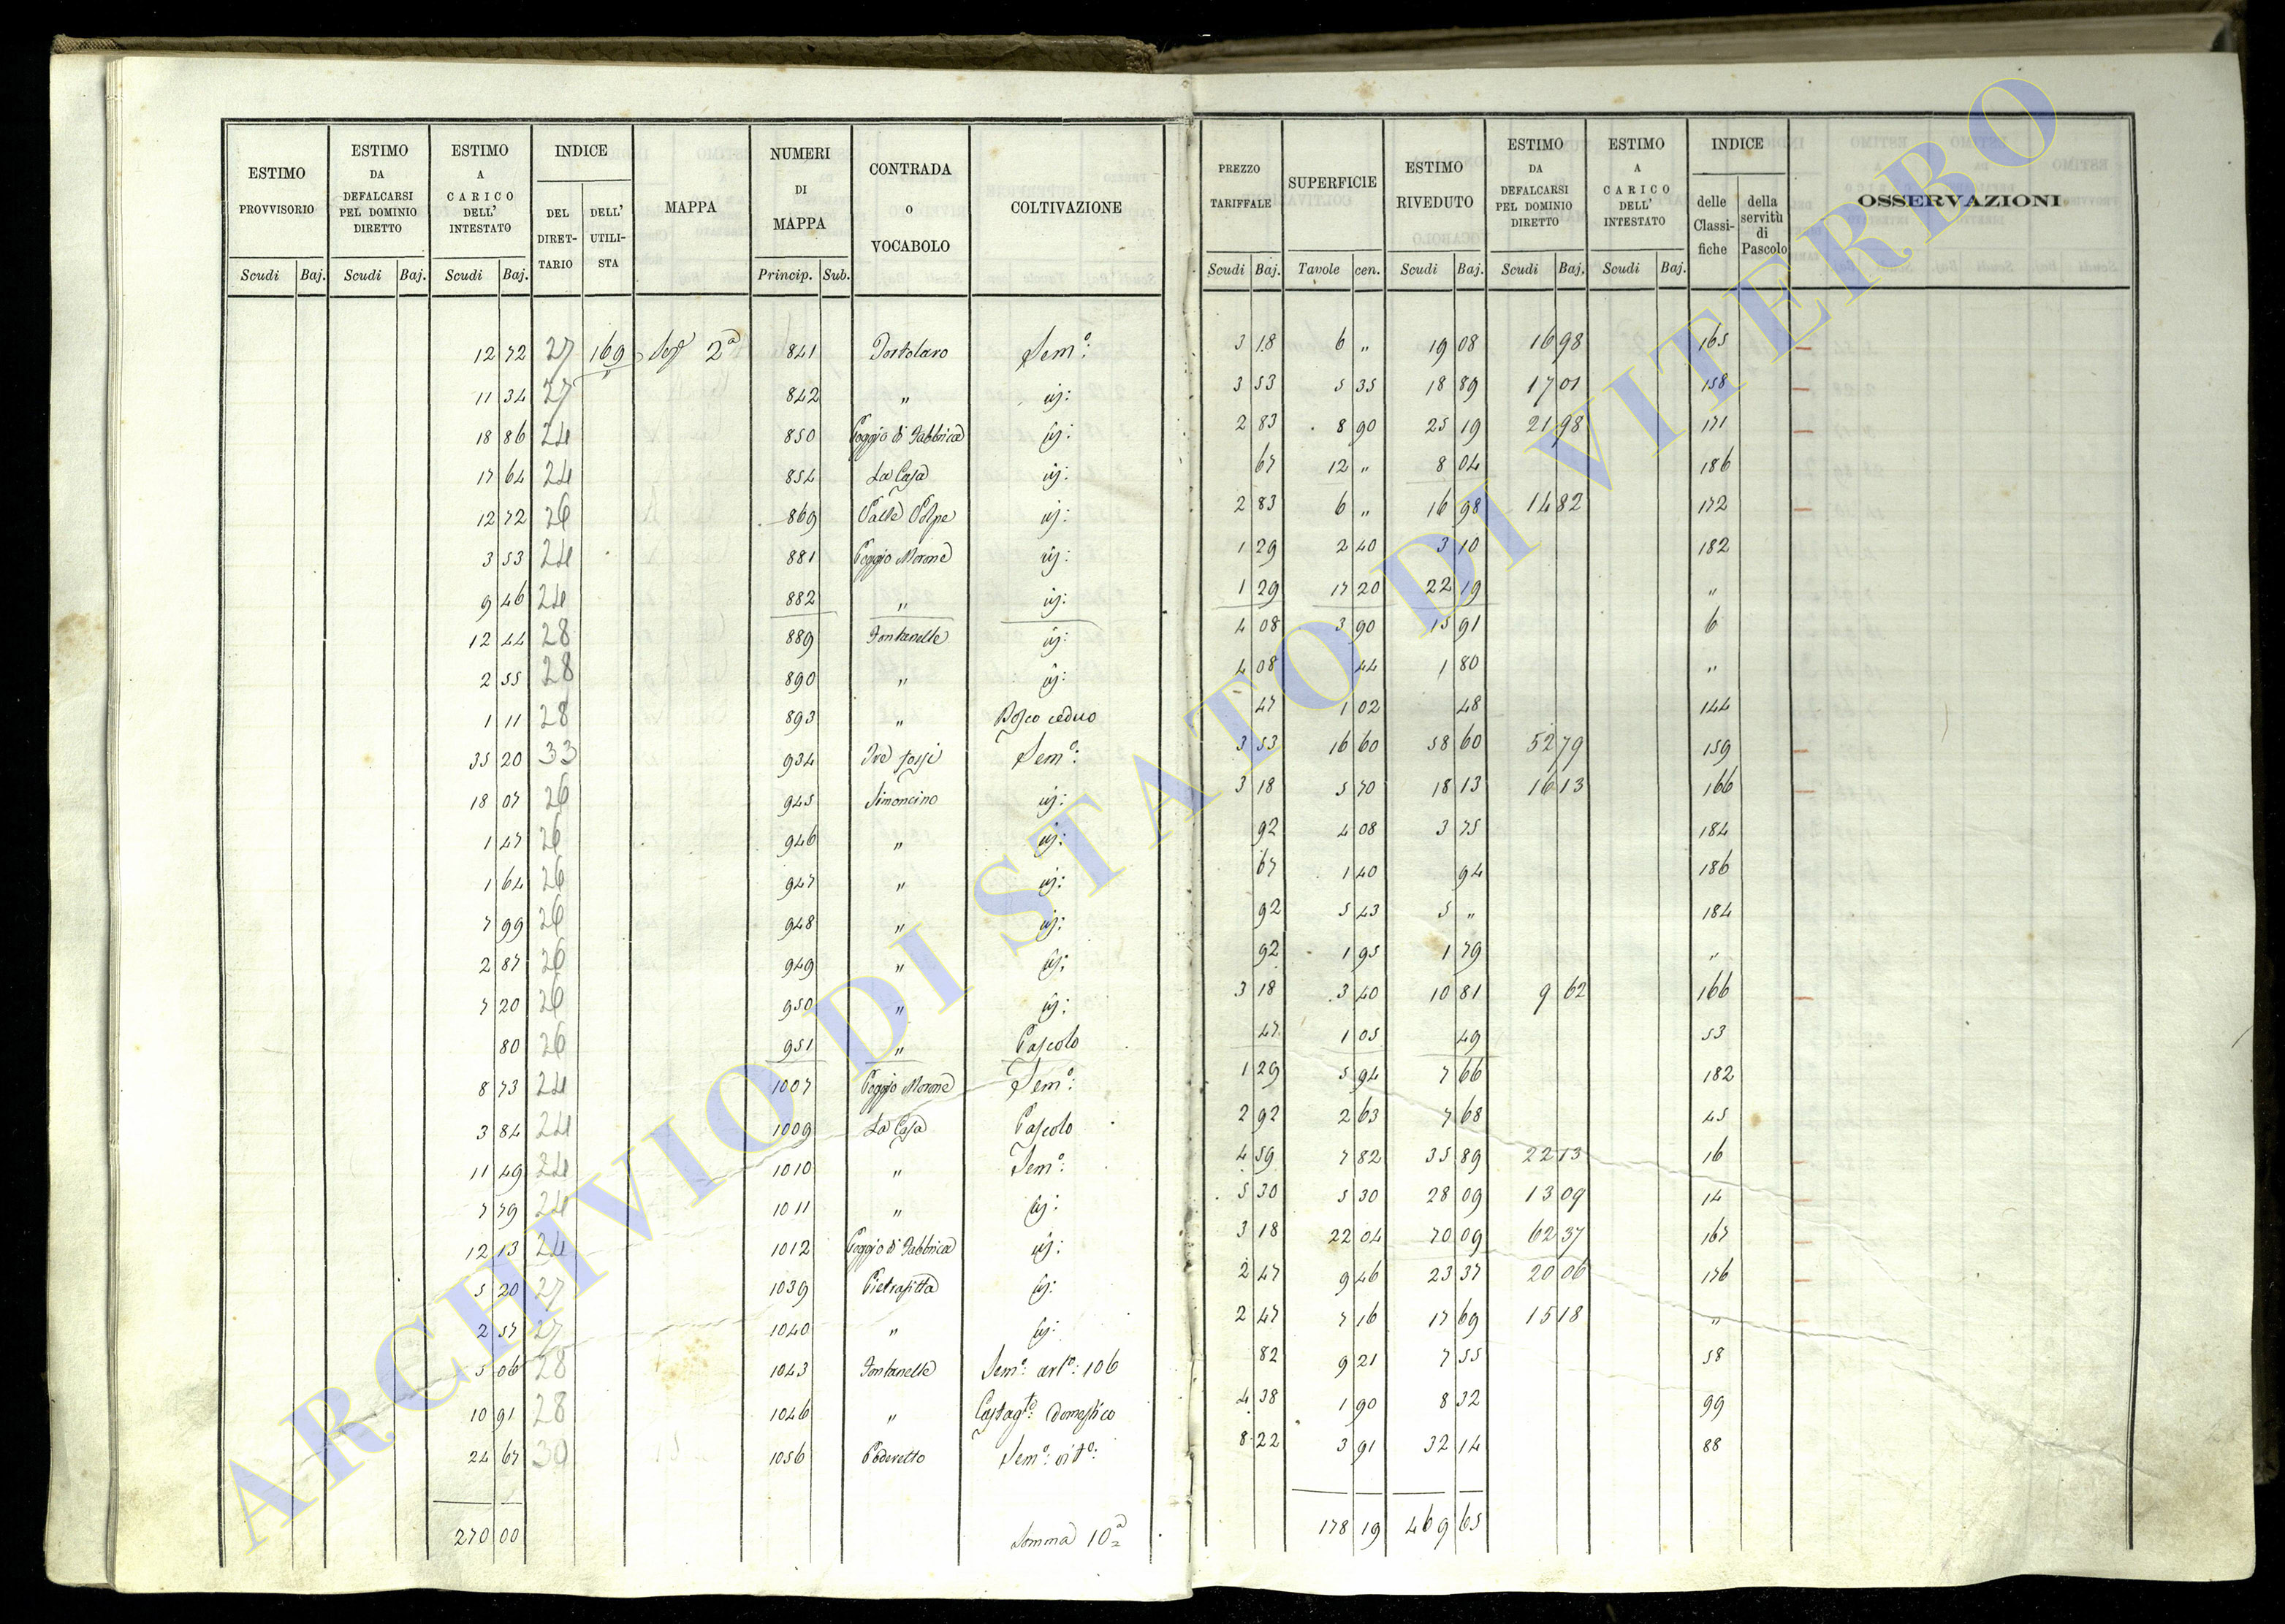 ESTIMO PROVVISORIO Scudi Baj. | ESTIMO DA DEFALCARSI PEL DOMINIO DIRETTO Scudi Baj. | ESTIMO A CARICO DELL' INTESTATO Scudi Baj. | INDICE DEL DIRET-TARIO DELL' UTILI-STA | MAPPA | NUMERI DI MAPPA Princip. Sub. | CONTRADA O VOCABOLO | COLTIVAZIONE | PREZZO TARIFFALE Scudi Baj. | SUPERFICIE Tavole cen. | ESTIMO RIVEDUTO Scudi Baj. | ESTIMO DA DEFALCARSI PEL DOMINIO DIRETTO Scudi Baj. | ESTIMO A CARICO DELL' INTESTATO Scudi Baj. | INDICE delle Classi-fiche della servitù di Pascolo | OSSERVAZIONI
12 72 27 169 2a 841 Tortolaro Semo: 3 18 6 " 19 08 16 98 165 —
11 34 27 " 842 " id: 3 53 5 35 18 89 17 01 158 —
18 86 24 850 Poggio di Fabbrica id: 2 83 8 90 25 19 21 98 171 —
17 64 24 854 La Casa id: 67 12 " 8 04 186
12 72 26 869 Valle Volpe id: 2 83 6 " 16 98 14 82 172 —
3 53 24 881 Poggio Morone id: 1 29 2 40 3 10 182
9 46 24 882 " id: 1 29 17 20 22 19 "
12 44 28 889 Fontanelle id: 4 08 3 90 15 91 6
2 55 28 890 " id: 4 08 44 1 80 "
1 11 28 893 " Bosco ceduo 47 1 02 48 144
35 20 33 934 Tre fossi Semo: 3 53 16 60 58 60 52 79 159 —
18 07 26 945 Simoncino id: 3 18 5 70 18 13 16 13 166 —
1 47 26 946 " id: 92 4 08 3 75 184
1 64 26 947 " id: 67 1 40 94 186
7 99 26 948 " id: 92 5 43 5 " 184
2 87 26 949 " id: 92 1 95 1 79 "
7 20 26 950 " id: 3 18 3 40 10 81 9 62 166 —
80 26 951 " Pascolo 47 1 05 49 53
8 73 24 1007 Poggio Morone Semo: 1 29 5 94 7 66 182
3 84 24 1009 La Casa Pascolo 2 92 2 63 7 68 45
11 49 24 1010 " Semo: 4 59 7 82 35 89 22 13 16 —
7 79 24 1011 " id: 5 30 5 30 28 09 13 09 14 —
12 13 24 1012 Poggio di Fabbrica id: 3 18 22 04 70 09 62 37 167 —
5 20 27 1039 Pietrafitta id: 2 47 9 46 23 37 20 06 176 —
2 57 27 1040 " id: 2 47 7 16 17 69 15 18 " —
5 06 28 1043 Fontanelle Semo: arto: 106 82 9 21 7 55 58
10 91 28 1046 " Castagto: Domestico 4 38 1 90 8 32 99
24 67 30 1056 Poderetto Semo: vito: 8 22 3 91 32 14 88
270 00 Somma 10a 178 19 469 65
ARCHIVIO DI STATO DI VITERBO